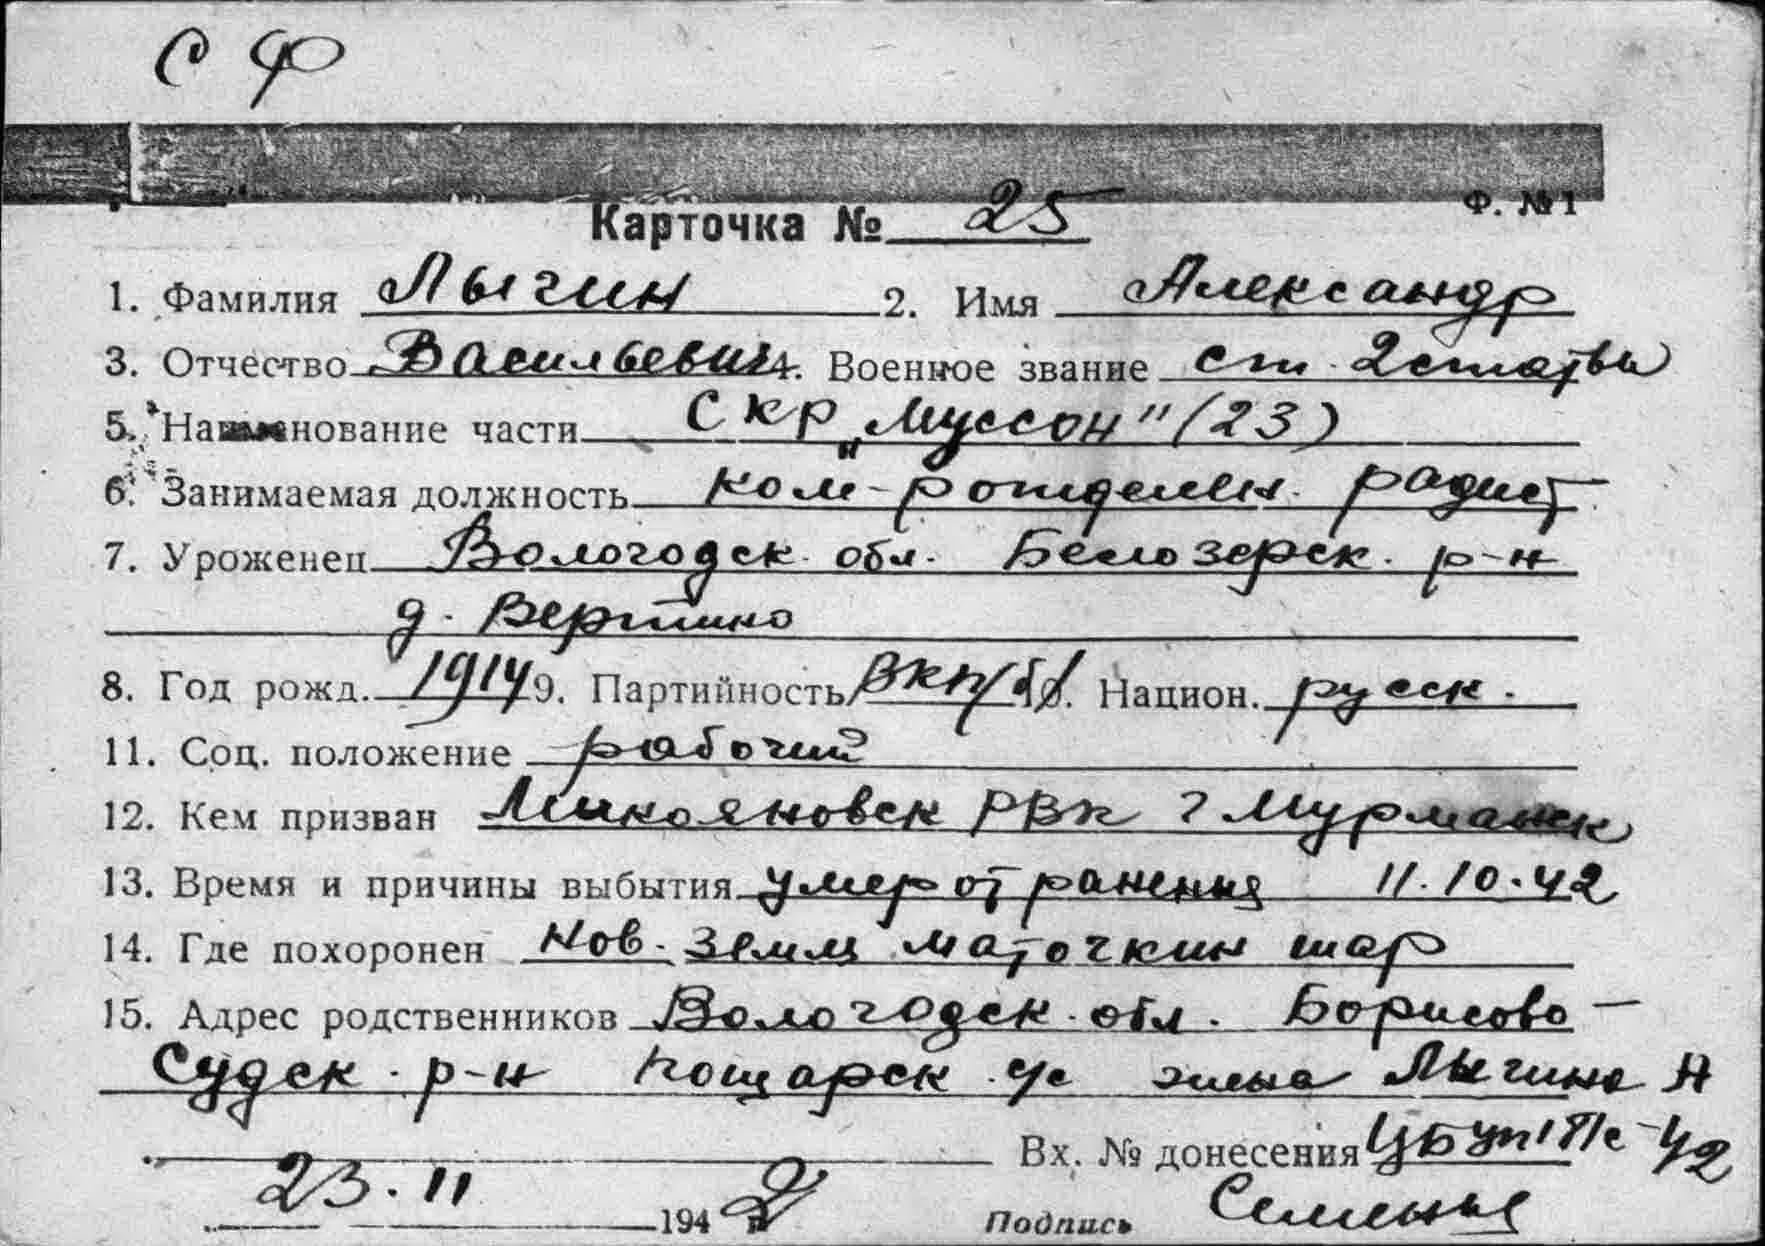 С Ф
Ф. №1
Карточка № 25
1. Фамилия Лычин 2. Имя Александр
3. Отчество Васильевич 4. Военное звание ст. 2 статьи
5. Наименование части СКР „Муссон" (23)
6. Занимаемая должность ком-р отделен. радист
7. Уроженец Вологодск. обл. Белозерск. р-н
д. Вертино
8. Год рожд. 1914 9. Партийность ВКП/б/ Национ. русск.
11. Соц. положение рабочий
12. Кем призван Микояновск РВК г Мурманск
13. Время и причины выбытия умер от ранения 11.10.42
14. Где похоронен Нов. Земля маточкин шар
15. Адрес родственников Вологодск. обл. Борисово-
Судск. р-н с/с жена Лычина А
Вх. № донесения ЦБУП
23.11 1942
Подпись